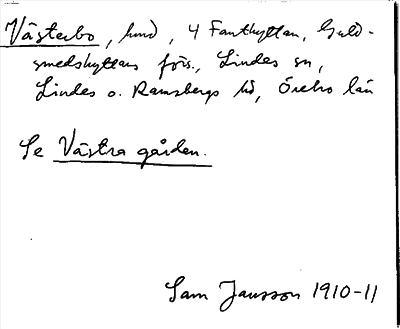 Västerbo, hmd, 4 Fanthyttan, Guld-
smedshyttans förs., Lindes sn,
Lindes o. Ramsbergs hd, Örebro län
Se Västra gården.
Sam Jansson 1910-11